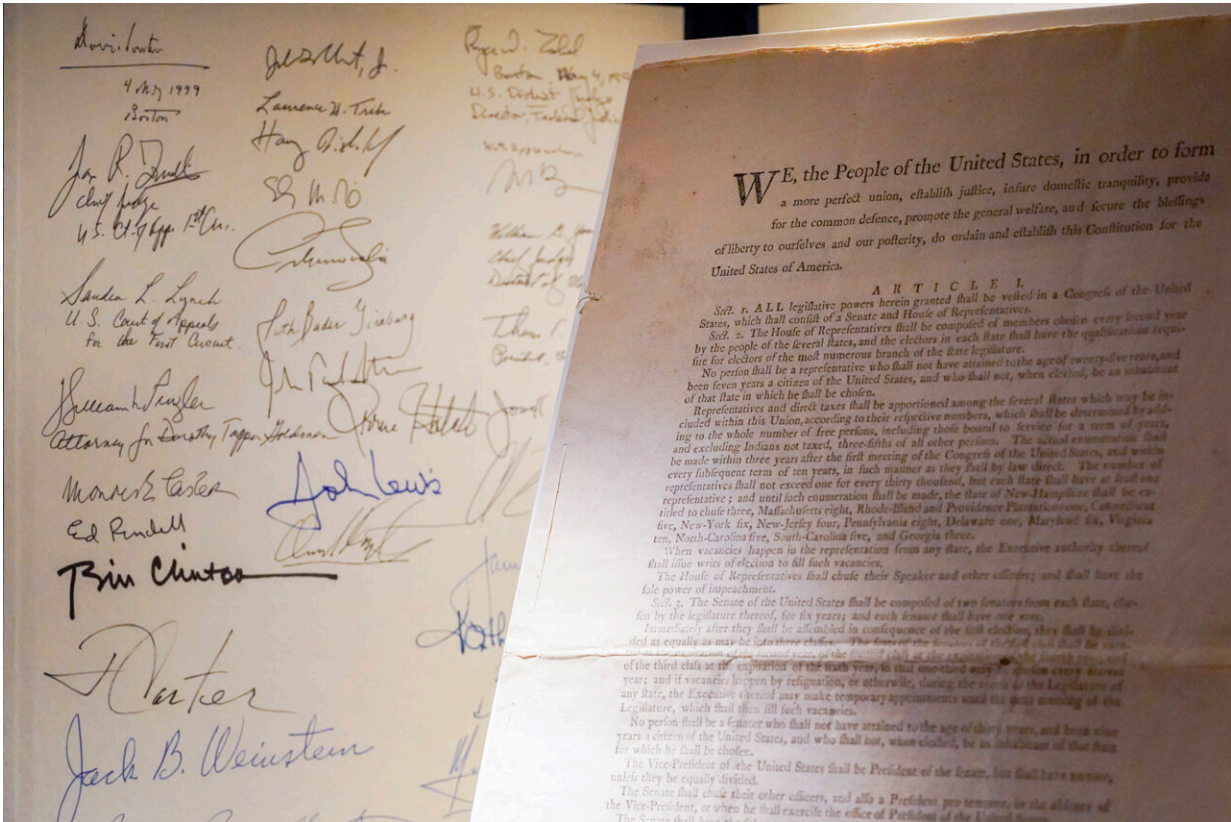 4 May 1999
Boston
chief judge
U.S. Ct. of App. 1st Cir.
Sandra L. Lynch
U.S. Court of Appeals
For the First Circuit
Attorney for Dorothy Tapper Goldman
Ed Rendell
Bill Clinton
J Carter
Jack B. Weinstein
Laurence H. Tribe
Ruth Bader Ginsburg
John Lewis
Boston May 4, 199
U.S. District Judge
Director, Federal Judic
William G. You
Chief Judge
District of M
WE, the People of the United States, in order to form
a more perfect union, establiſh juſtice, inſure domeſtic tranquility, provide
for the common defence, promote the general welfare, and ſecure the bleſſings
of liberty to ourſelves and our poſterity, do ordain and eſtabliſh this Conſtitution for the
United States of America.
ARTICLE I.
Sect. 1. ALL legiſlative powers herein granted ſhall be veſted in a Congreſs of the United
States, which ſhall conſiſt of a Senate and Houſe of Repreſentatives.
Sect. 2. The Houſe of Repreſentatives ſhall be compoſed of members choſen every ſecond year
by the people of the ſeveral ſtates, and the electors in each ſtate ſhall have the qualifications requi-
ſite for electors of the moſt numerous branch of the ſtate legiſlature.
No perſon ſhall be a repreſentative who ſhall not have attained to the age of twenty-five years, and
been ſeven years a citizen of the United States, and who ſhall not, when elected, be an inhabitant
of that ſtate in which he ſhall be choſen.
Repreſentatives and direct taxes ſhall be apportioned among the ſeveral ſtates which may be in-
cluded within this Union, according to their reſpective numbers, which ſhall be determined by add-
ing to the whole number of free perſons, including thoſe bound to ſervice for a term of years,
and excluding Indians not taxed, three-fifths of all other perſons. The actual enumeration ſhall
be made within three years after the firſt meeting of the Congreſs of the United States, and within
every ſubſequent term of ten years, in ſuch manner as they ſhall by law direct. The number of
repreſentatives ſhall not exceed one for every thirty thouſand, but each ſtate ſhall have at leaſt one
repreſentative; and until ſuch enumeration ſhall be made, the ſtate of New-Hampſhire ſhall be en-
titled to chuſe three, Maſſachuſetts eight, Rhode-Iſland and Providence Plantations one, Connecticut
five, New-York ſix, New-Jerſey four, Pennſylvania eight, Delaware one, Maryland ſix, Virginia
ten, North-Carolina five, South-Carolina five, and Georgia three.
When vacancies happen in the repreſentation from any ſtate, the Executive authority thereof
ſhall iſſue writs of election to fill ſuch vacancies.
The Houſe of Repreſentatives ſhall chuſe their Speaker and other officers; and ſhall have the
ſole power of impeachment.
Sect. 3. The Senate of the United States ſhall be compoſed of two ſenators from each ſtate, cho-
ſen by the legiſlature thereof, for ſix years; and each ſenator ſhall have one vote.
Immediately after they ſhall be aſſembled in conſequence of the firſt election, they ſhall be divi-
ded as equally as may be into three claſſes.
of the third claſs at the expiration of the ſixth year, ſo that one-third may be choſen every ſecond
year; and if vacancies happen by reſignation, or otherwiſe, during the receſs of the Legiſlature of
any ſtate, the Executive thereof may make temporary appointments until the next meeting of the
Legiſlature, which ſhall then fill ſuch vacancies.
No perſon ſhall be a ſenator who ſhall not have attained to the age of thirty years, and been nine
years a citizen of the United States, and who ſhall not, when elected, be an inhabitant of that ſtate
for which he ſhall be choſen.
The Vice-Preſident of the United States ſhall be Preſident of the ſenate, but ſhall have no vote,
unleſs they be equally divided.
The Senate ſhall chuſe their other officers, and alſo a Preſident pro tempore, in the abſence of
the Vice-Preſident, or when he ſhall exerciſe the office of Preſident of the United States.
The Senate ſhall have the ſole